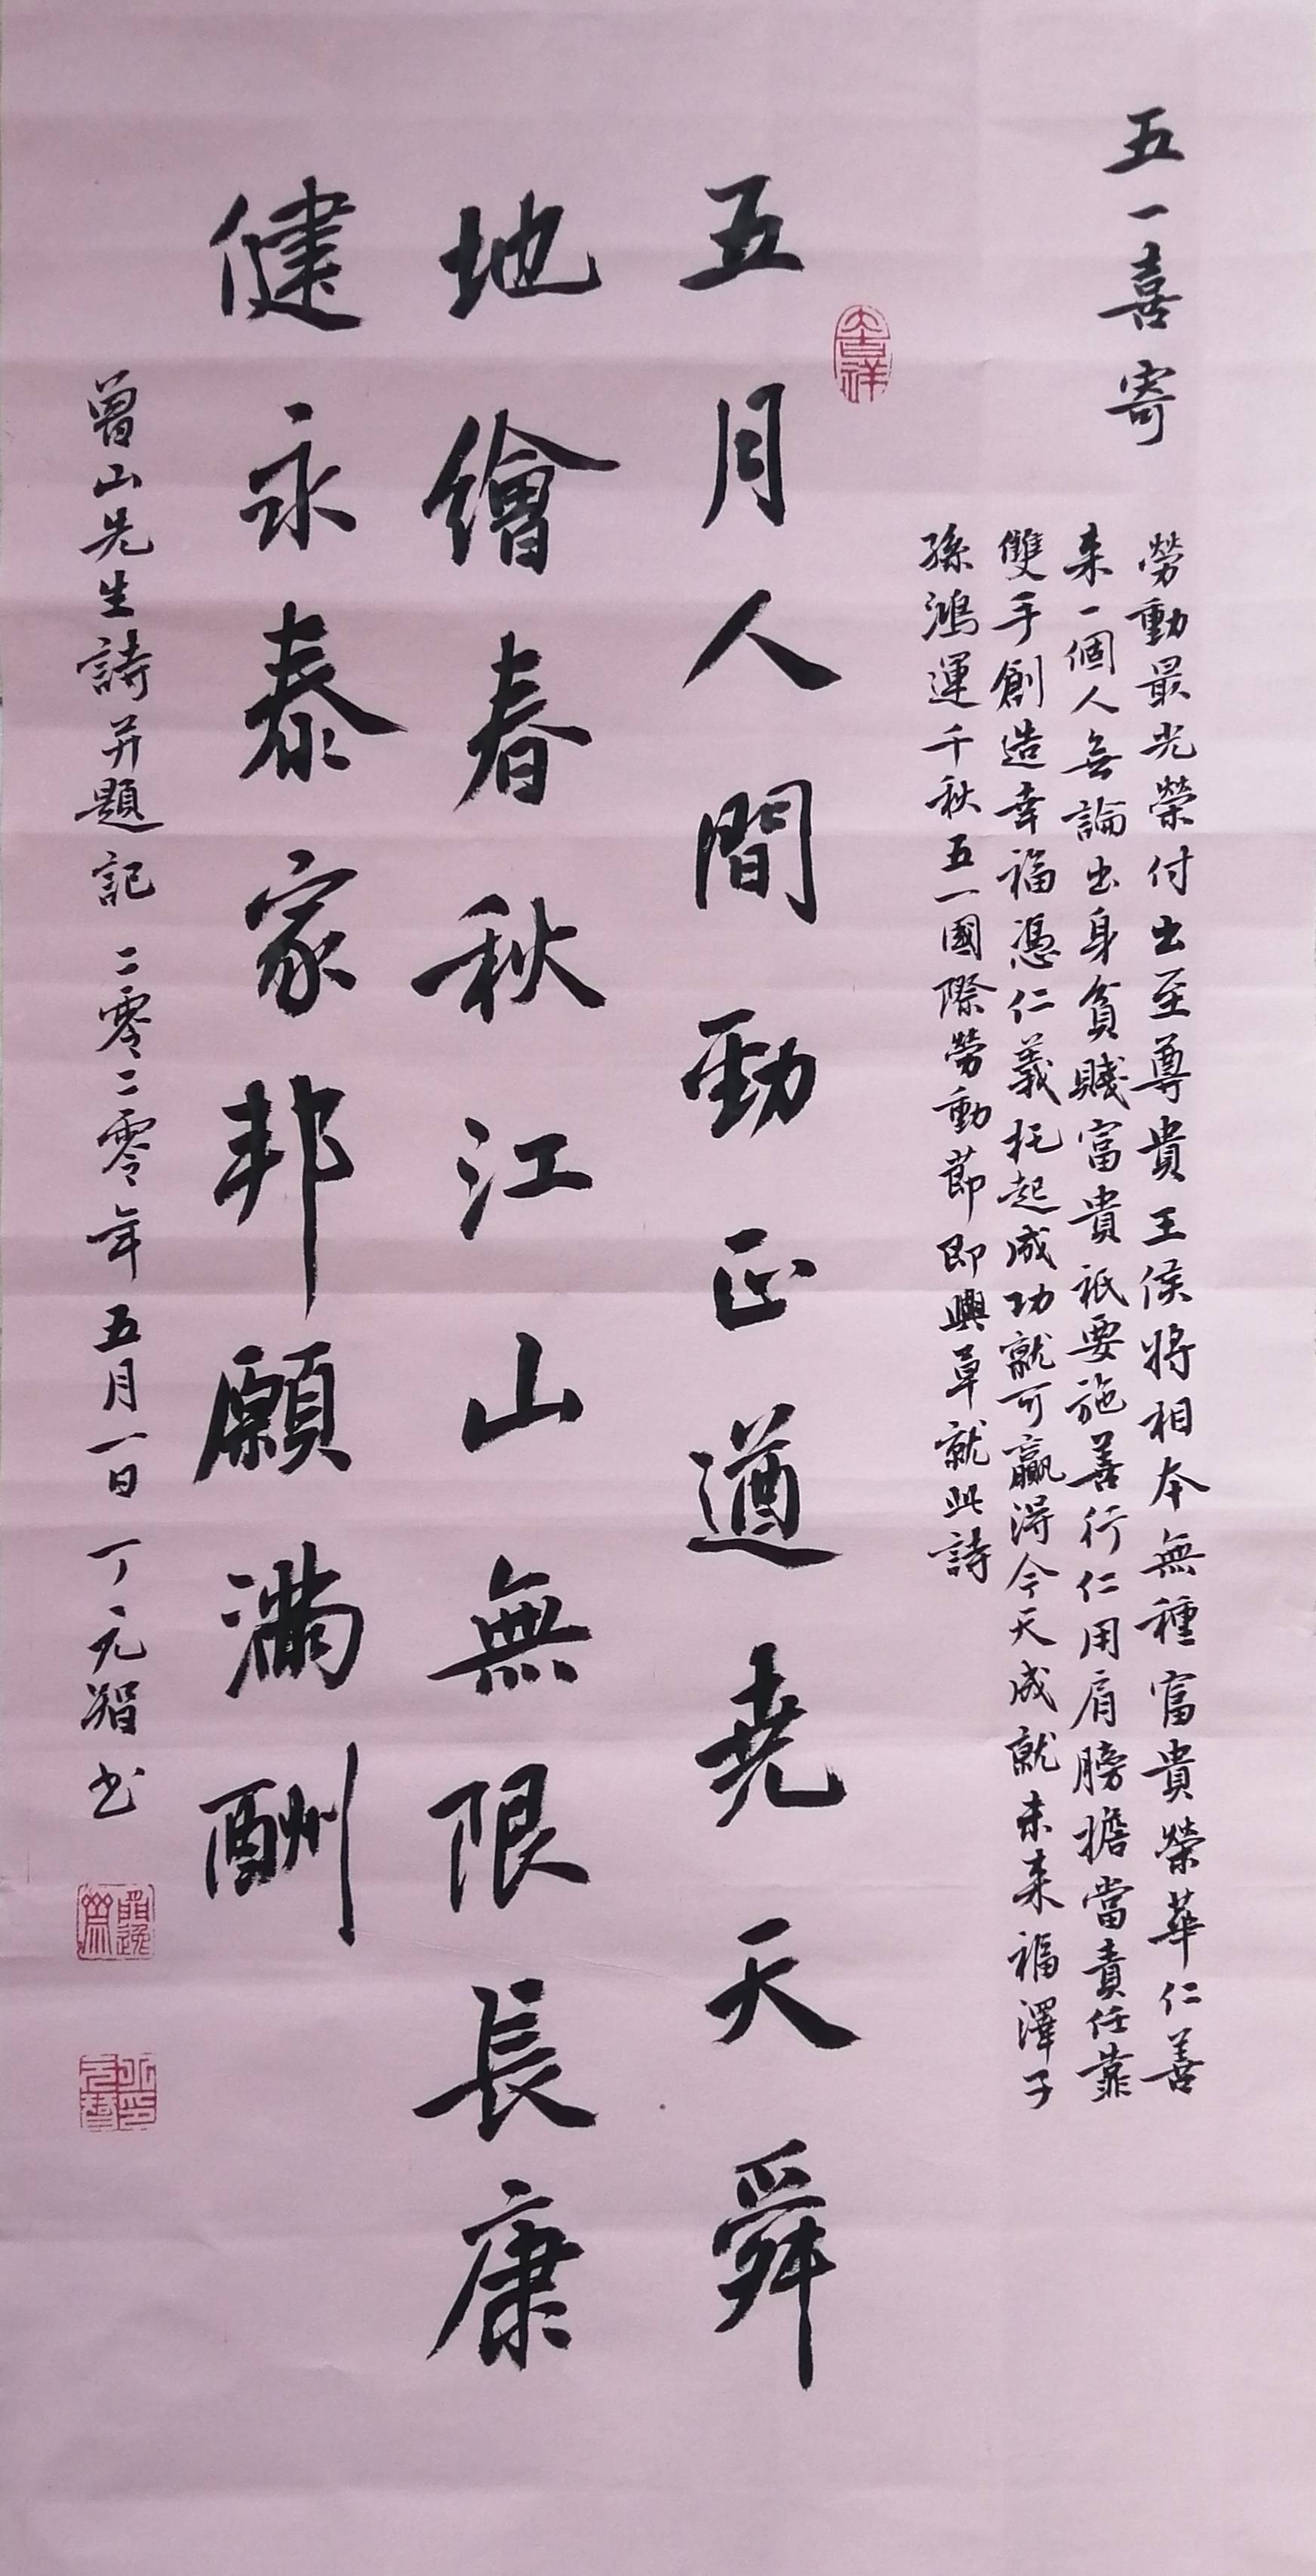 五一喜寄
勞動最光榮付出至尊貴王侯將相本無種富貴榮華仁善
来一個人無論出身貧賤富貴祇要施善行仁用肩膀擔當責任靠
雙手創造幸福憑仁義托起成功就可贏得今天成就未来福澤子
孫鴻運千秋五一國際勞動節即興草就此詩
大吉祥
五月人間勁正遒堯天舜
地繪春秋江山無限長康
健永泰家邦願滿酬
曾山先生詩并題記二零二零年五月一日丁元智书